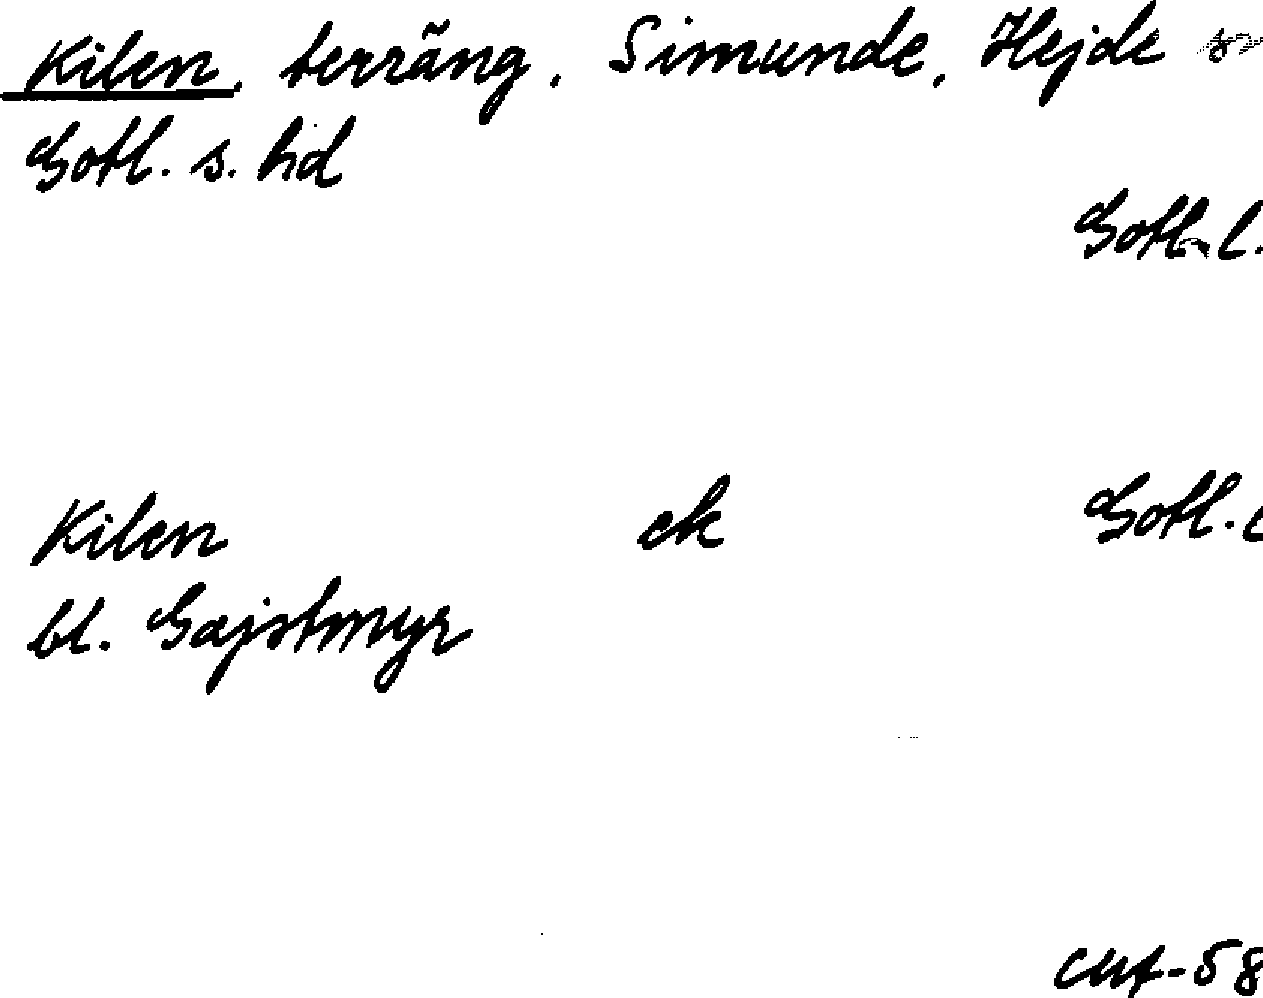 Kilen, terräng, Simunde, Hejde sn
Gotl. s. hd
Gotl. l.
Kilen ek Gotl.
bl. Gajstmyr
-58